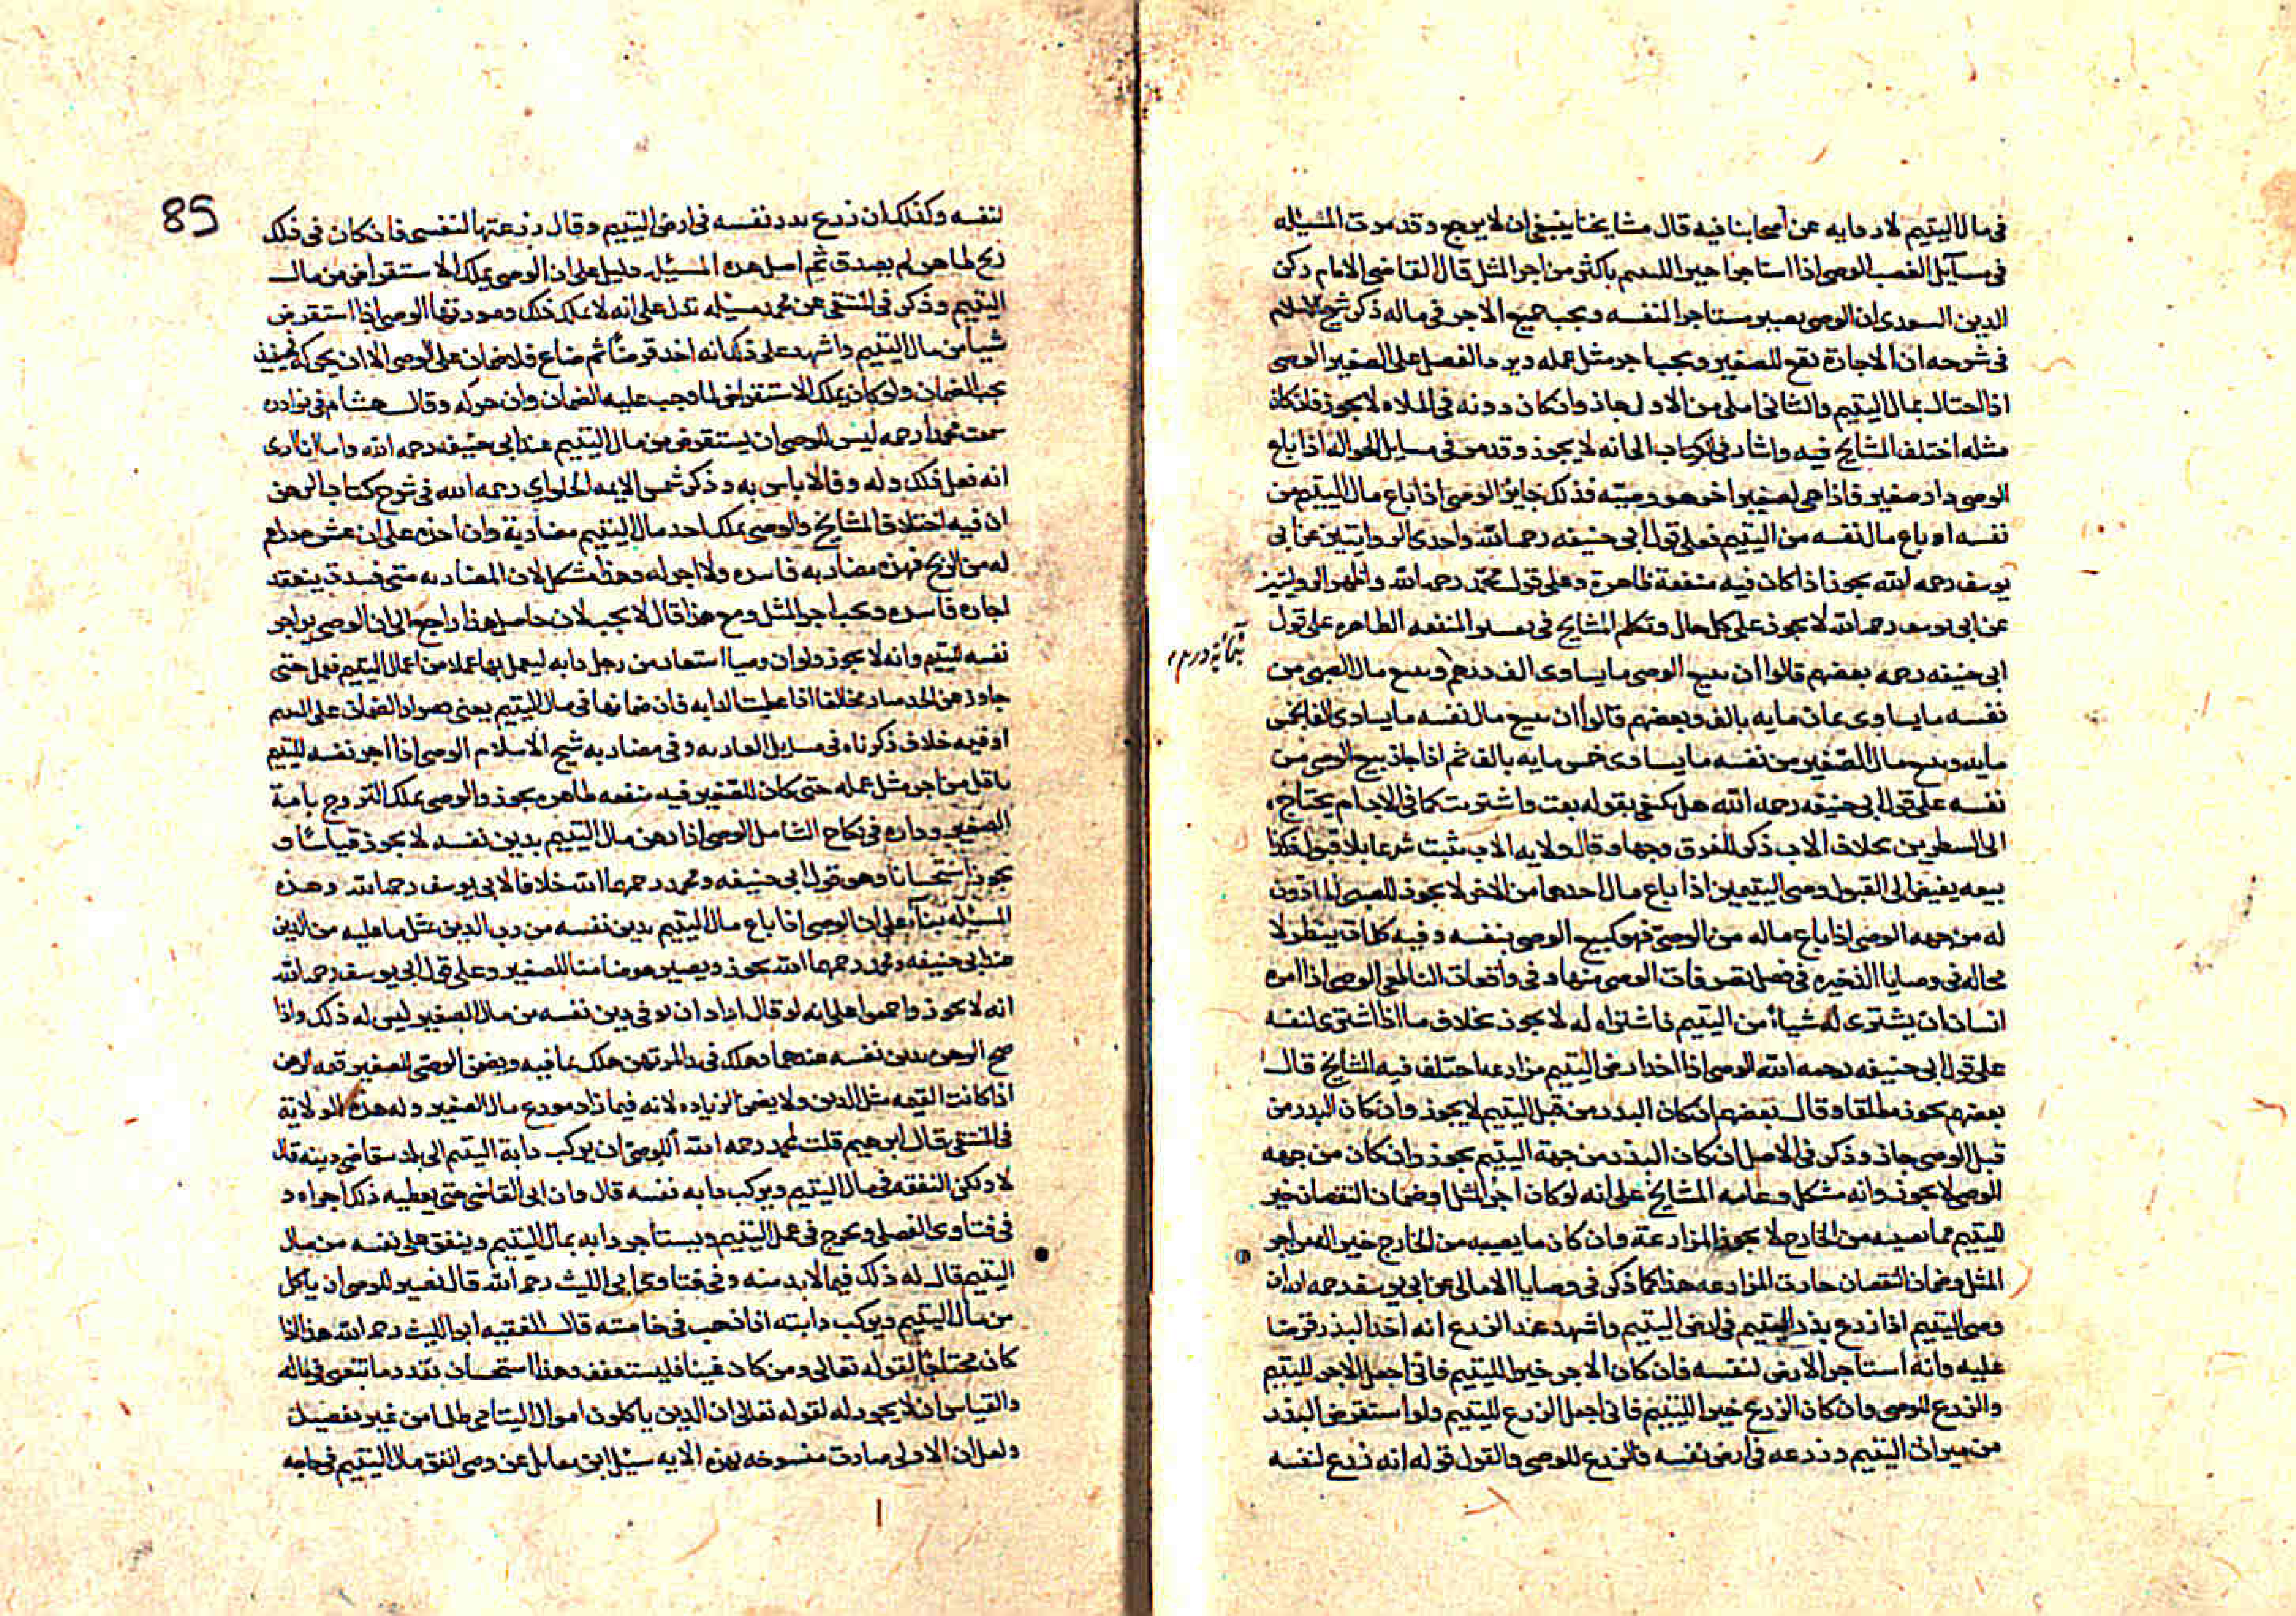 في مال اليتيم لا رواية عن أصحابنا فيه قال مشايخنا ينبغي ان لا يرجع وقد مرت المسئله
في مسآيل الغصب الوصي اذا استاجر اجيرا لليتيم باكثر من اجر المثل قال القاضي الامام ركن
الدين السعدي ان الوصي يصير مستاجرا لنفسه ويجب جميع الاجر في ماله ذكر شيخ الاسلام
في شرحه ان الاجارة تقع للصغير ويجب اجر مثل عمله ويرد الفضل على الصغير الوصي
اذا احتال بمال اليتيم والثاني املى من الاول جاز وان كان دونه في الملاه لا يجوز فان كان
مثله اختلف المشايخ فيه واشار في الكتاب الى انه لا يجوز وقد مر في مسايل الحواله اذا باع
الوصي دار صغير فاذا هي لصغير اخر هو وصيه فذلك جايز الوصي اذا باع مال اليتيم من
نفسه او باع مال نفسه من اليتيم فعلى قول ابي حنيفه رحمه الله واحدى الروايتين عن ابي
يوسف رحمه الله يجوز اذا كان فيه منفعة ظاهرة وعلى قول محمد رحمه الله واظهر الروايتين
عن ابي يوسف رحمه الله لا يجوز على كل حال وتكلم المشايخ في تفسير المنفعه الظاهره على قول
ابي حنيفه رحمه بعضهم قالوا ان يبيع الوصي ما يساوي الف درهم ويبيع مال الصبي من
نفسه ما يساوي ثمان مايه بالف وبعضهم قالوا ان يبيع مال نفسه ما يساوي الفا بخمس
مايه ويبيع مال الصغير من نفسه ما يساوي خمس مايه بالف ثم اذا جاز بيع الوصي من
نفسه على قول ابي حنيفه رحمه الله هل يكتفي بقوله بعت واشتريت كما في الاب ام يحتاج
الى الشطرين بخلاف الاب ذكر للفرق وجها وقال ولايه الاب يثبت شرعا بلا قبول فكذا
بيعه يفيض الى القبول وصي اليتيمين اذا باع مال احدهما من الاخر لا يجوز للصبي الماذون
له من جهه الوصي اذا باع ماله من الوصي فهو كبيع الوصي بنفسه وفيه كلمات ينظر لا
محاله في وصايا الذخيره في فصل تصرفات الوصي منها وفي واقعات الناطفي الوصي اذا امره
انسان ان يشتري له شياء من اليتيم فاشتراه له لا يجوز بخلاف ما اذا اشترى لنفسه
على قول ابي حنيفه رحمه الله الوصي اذا اخذ ارض اليتيم مزارعه اختلف فيه المشايخ قال
بعضهم يجوز مطلقا وقال بعضهم ان كان البذر من قبل اليتيم لا يجوز وان كان البذر من
قبل الوصي جاز وذكر في الاصل ان كان البذر من جهة اليتيم يجوز وان كان من جهه
الوصي لا يجوز وانه مشكل وعامه المشايخ على انه لو كان اجر المثل وضمان النقصان خير
لليتيم مما يصيبه من الخارج لا يجوز المزارعة وان كان ما يصيبه من الخارج خير اله من اجر
المثل وضمان النقصان جازت المزارعه هذا كما ذكر في وصايا الامالي عن ابي يوسف رحمه الله ان
وصي اليتيم اذا زرع بذر اليتيم في ارض اليتيم واشهد عند الزرع انه اخذ البذر قرضا
عليه وانه استاجر الارض لنفسه فان كان الاجر خيرا لليتيم فاني اجعل الاجر لليتيم
والزرع للوصي وان كان الزرع خيرا لليتيم فاني اجعل الزرع لليتيم ولو استقرض البذر
من ميراث اليتيم وزرعه في ارض نفسه فالزرع للوصي والقول قوله انه زرع لنفسه
85
لنفسه وكذلك ان زرع بذر نفسه في ارض اليتيم وقال زرعتها لنفسي فان كان في ذلك
ربح ظاهر لم يصدق ثم اصل هذه المسئله دليل على ان الوصي يملك الاستقراض من مال
اليتيم وذكر في المنتقى عن محمد مسئله تدل على انه لا يملك ذلك وصورتها الوصي اذا استقرض
شيا من مال اليتيم واشهد على ذلك انه اخذ قرضا ثم ضاع فلا ضمان على الوصي الا ان يحركه فحينئذ
يجب الضمان ولو كان يملك الاستقراض لما وجب عليه الضمان وان حركه وقال هشام في نوادره
سمعت محمدا رحمه ليس للوصي ان يستقرض من مال اليتيم عند ابي حنيفه رحمه الله واما انا ارى
انه فعل ذلك وله وفا لا باس به وذكر شمس الايمه الحلواي رحمه الله في شرح كتاب الرهن
ان فيه اختلاف المشايخ والوصي يملك اخذ مال اليتيم مضاربة وان اخذه على ان عشره دراهم
له من الربح فهذه مضاربه فاسده ولا اجر له وهذا مشكل لان المضاربه متى فسدت ينعقد
اجاره فاسده ويجب اجر المثل ومع هذا قال لا يجب لان حاصل هذا راجع الى ان الوصي يواجر
نفسه لليتيم وانه لا يجوز ولو ان وصيا استعار من رجل دابه ليعمل بها عملا من اعمال اليتيم فعمل حتى
جاوز عن الحد صار مخالفا اذا عطبت الدابه فان ضمانها في مال اليتيم يعني صورا الضمان على اليتيم
او قيمه خلاف ذكرناه في مسايل العاريه وفي مضاربه شيخ الاسلام الوصي اذا اجر نفسه لليتيم
باقل من اجر مثل عمله حتى كان للصغير فيه منفعه ظاهره يجوز والوصي يملك التزوج بامة
الصغير وداره في نكاح الشامل الوصي اذا رهن مال اليتيم بدين نفسه لا يجوز قياسا و
يجوز استحسانا وهو قول ابي حنيفه ومحمد رحمهما الله خلافا لابي يوسف رحمه الله وهذه
المسئله بناء على ان الوصي اذا باع مال اليتيم بدين نفسه من رب الدين بمثل ما عليه من الدين
عند ابي حنيفه ومحمد رحمهما الله يجوز ويصير هو ضامنا للصغير وعلى قول ابي يوسف رحمه الله
انه لا يجوز واجمعوا على انه لو قال اراد ان يوفي دين نفسه من مال الصغير ليس له ذلك واذا
صح الرهن بدين نفسه عندهما وهلك في يد المرتهن هلك بما فيه ويضمن الوصي للصغير قيمه الرهن
اذا كانت القيمه مثل الدين ولا يضمن الزياده لانه فيما زاد مودع مال الصغير وله هذه الولاية
في المنتقى قال ابرهيم قلت لمحمد رحمه الله أللوصي ان يركب دابة اليتيم الى بلد يتقاضى دينه قال
لا ولكن النفقه في مال اليتيم ويركب دابه نفسه قال وان ابى القاضي حتى يعطيه ذلك اجراه و
في فتاوى الفضلي ويخرج في عمل اليتيم ويستاجر دابه بمال اليتيم وينفق على نفسه من مال
اليتيم قال له ذلك فيما لابد منه وفي فتاوى ابي الليث رحمه الله قال نصير للوصي ان ياكل
من مال اليتيم ويركب دابته اذا ذهب في حاجته قال الفقيه ابو الليث رحمه الله هذا اذا
كان محتاجا لقوله تعالى ومن كان غنيا فليستعفف وهذا استحسان بقدر ما يسعى في ماله
والقياس ان لا يجوز له لقوله تعالى ان الذين ياكلون اموال اليتامى ظلما من غير تفصيل
ولعل ان الاولى صارت منسوخه بهذه الايه سئل ابن مقاتل عن وصي انفق مال اليتيم في حاجه